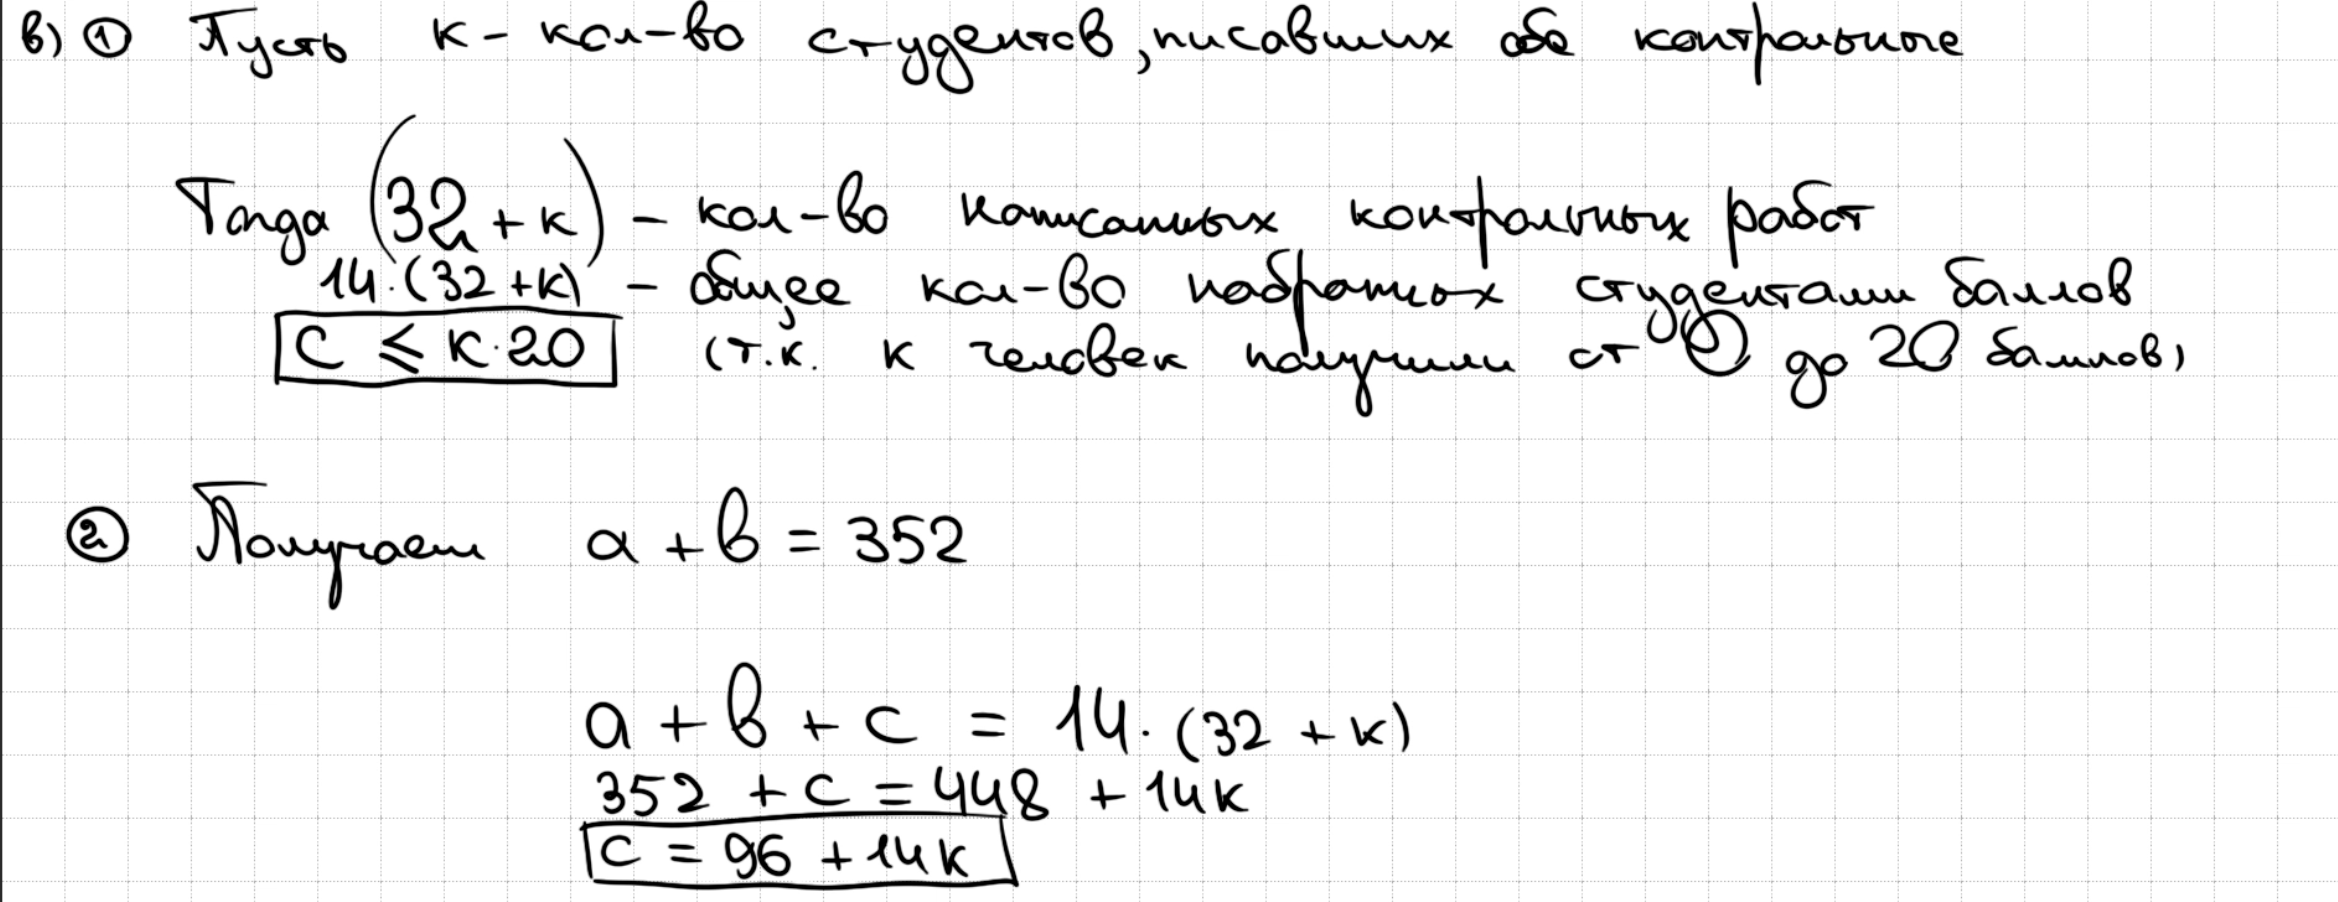 в) ① Пусть к - кол-во студентов, писавших обе контрольные
Тогда (32 + к) - кол-во написанных контрольных работ
14·(32 + к) - общее кол-во набранных студентами баллов
С ⩽ к·20 (т.к. к человек получили от 0 до 20 баллов)
② Получаем а + в = 352
а + в + с = 14·(32 + к)
352 + с = 448 + 14к
с = 96 + 14к